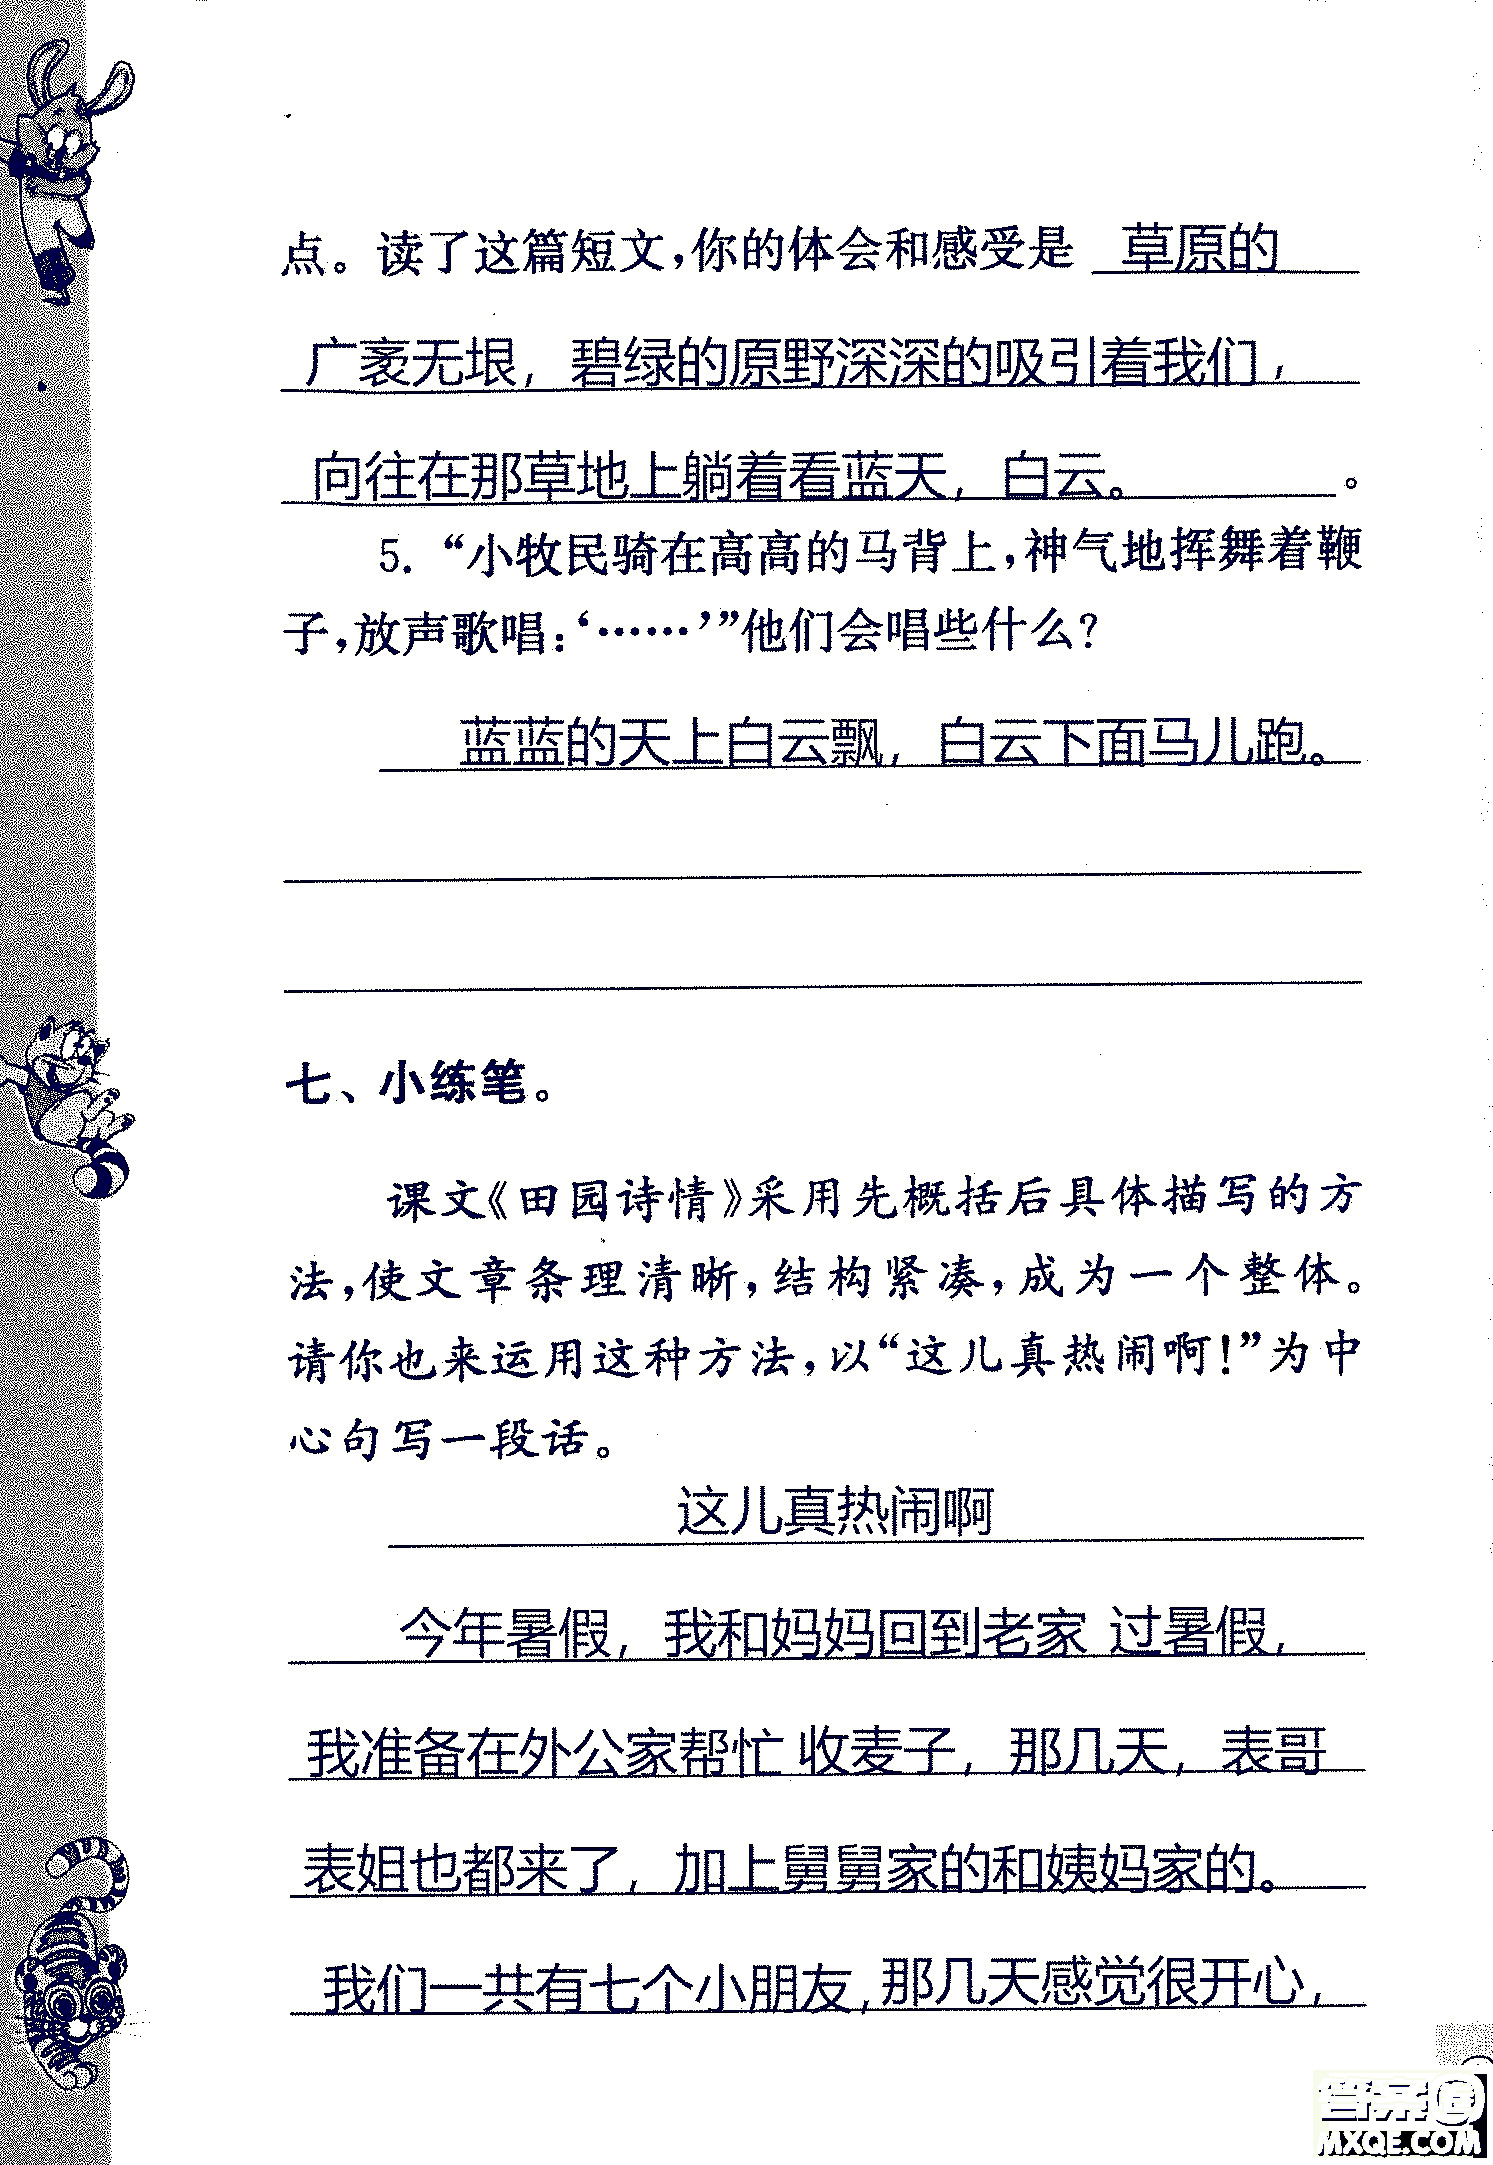 点。读了这篇短文，你的体会和感受是 草原的
广袤无垠，碧绿的原野深深的吸引着我们，
向往在那草地上躺着看蓝天，白云。 。
5. “小牧民骑在高高的马背上，神气地挥舞着鞭
子，放声歌唱：‘……’”他们会唱些什么？
蓝蓝的天上白云飘，白云下面马儿跑。
七、小练笔。
课文《田园诗情》采用先概括后具体描写的方
法，使文章条理清晰，结构紧凑，成为一个整体。
请你也来运用这种方法，以“这儿真热闹啊！”为中
心句写一段话。
这儿真热闹啊
今年暑假，我和妈妈回到老家 过暑假，
我准备在外公家帮忙 收麦子，那几天，表哥
表姐也都来了，加上舅舅家的和姨妈家的。
我们一共有七个小朋友，那几天感觉很开心，
答案圈
MXQE.COM